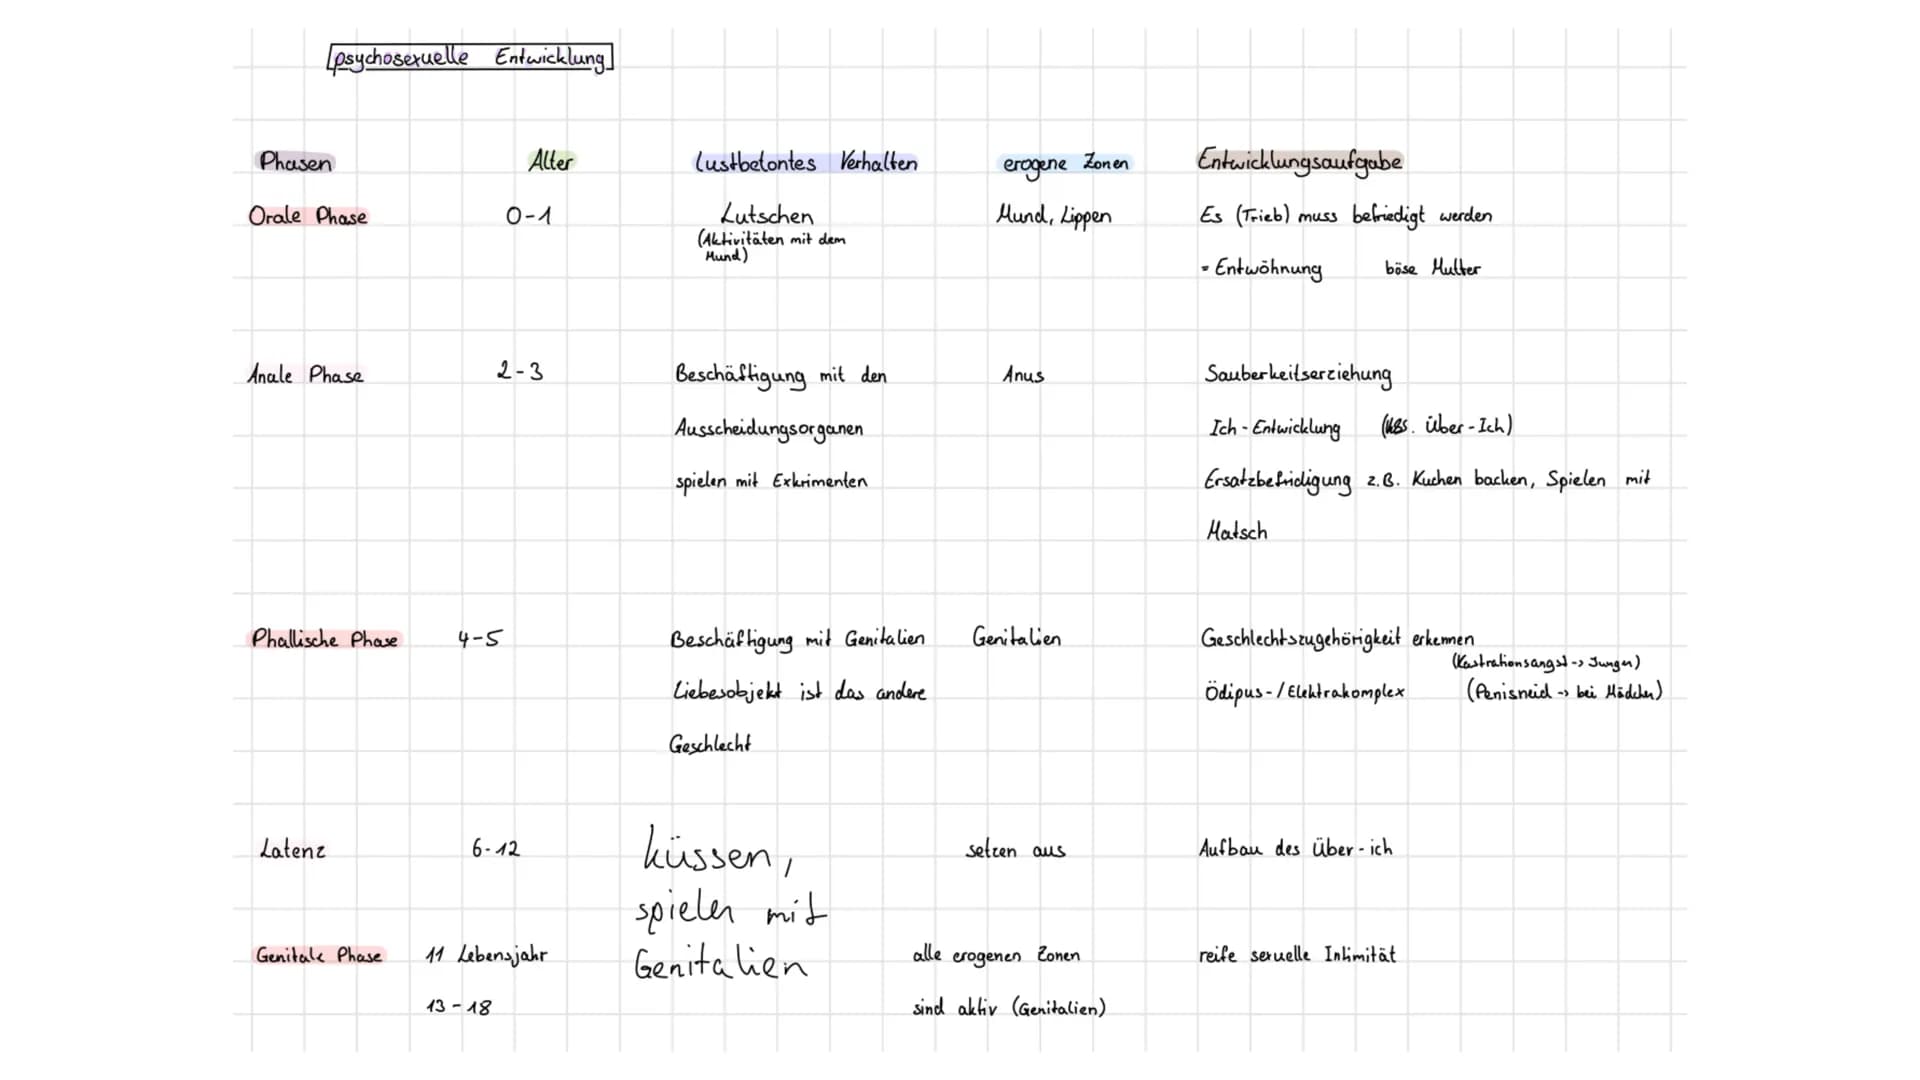 psychosexuelle Entwicklung
Phasen Alter Lustbetontes Verhalten erogene Zonen Entwicklungsaufgabe
Orale Phase 0-1 Lutschen Mund, Lippen Es (Trieb) muss befriedigt werden
(Aktivitäten mit dem
Mund)
= Entwöhnung böse Mutter
Anale Phase 2-3 Beschäftigung mit den Anus Sauberkeitserziehung
Ausscheidungsorganen Ich-Entwicklung (bes. Über-Ich)
spielen mit Exkrimenten Ersatzbefridigung z.B. Kuchen backen, Spielen mit
Matsch
Phallische Phase 4-5 Beschäftigung mit Genitalien Genitalien Geschlechtszugehörigkeit erkennen
(Kastrationsangst -> Jungen)
Liebesobjekt ist das andere Ödipus-/Elektrakomplex (Penisneid -> bei Mädchen)
Geschlecht
Latenz 6-12 küssen, setzen aus Aufbau des Über-ich
spielen mit
Genitale Phase 11 Lebensjahr Genitalien alle erogenen Zonen reife sexuelle Intimität
13-18 sind aktiv (Genitalien)